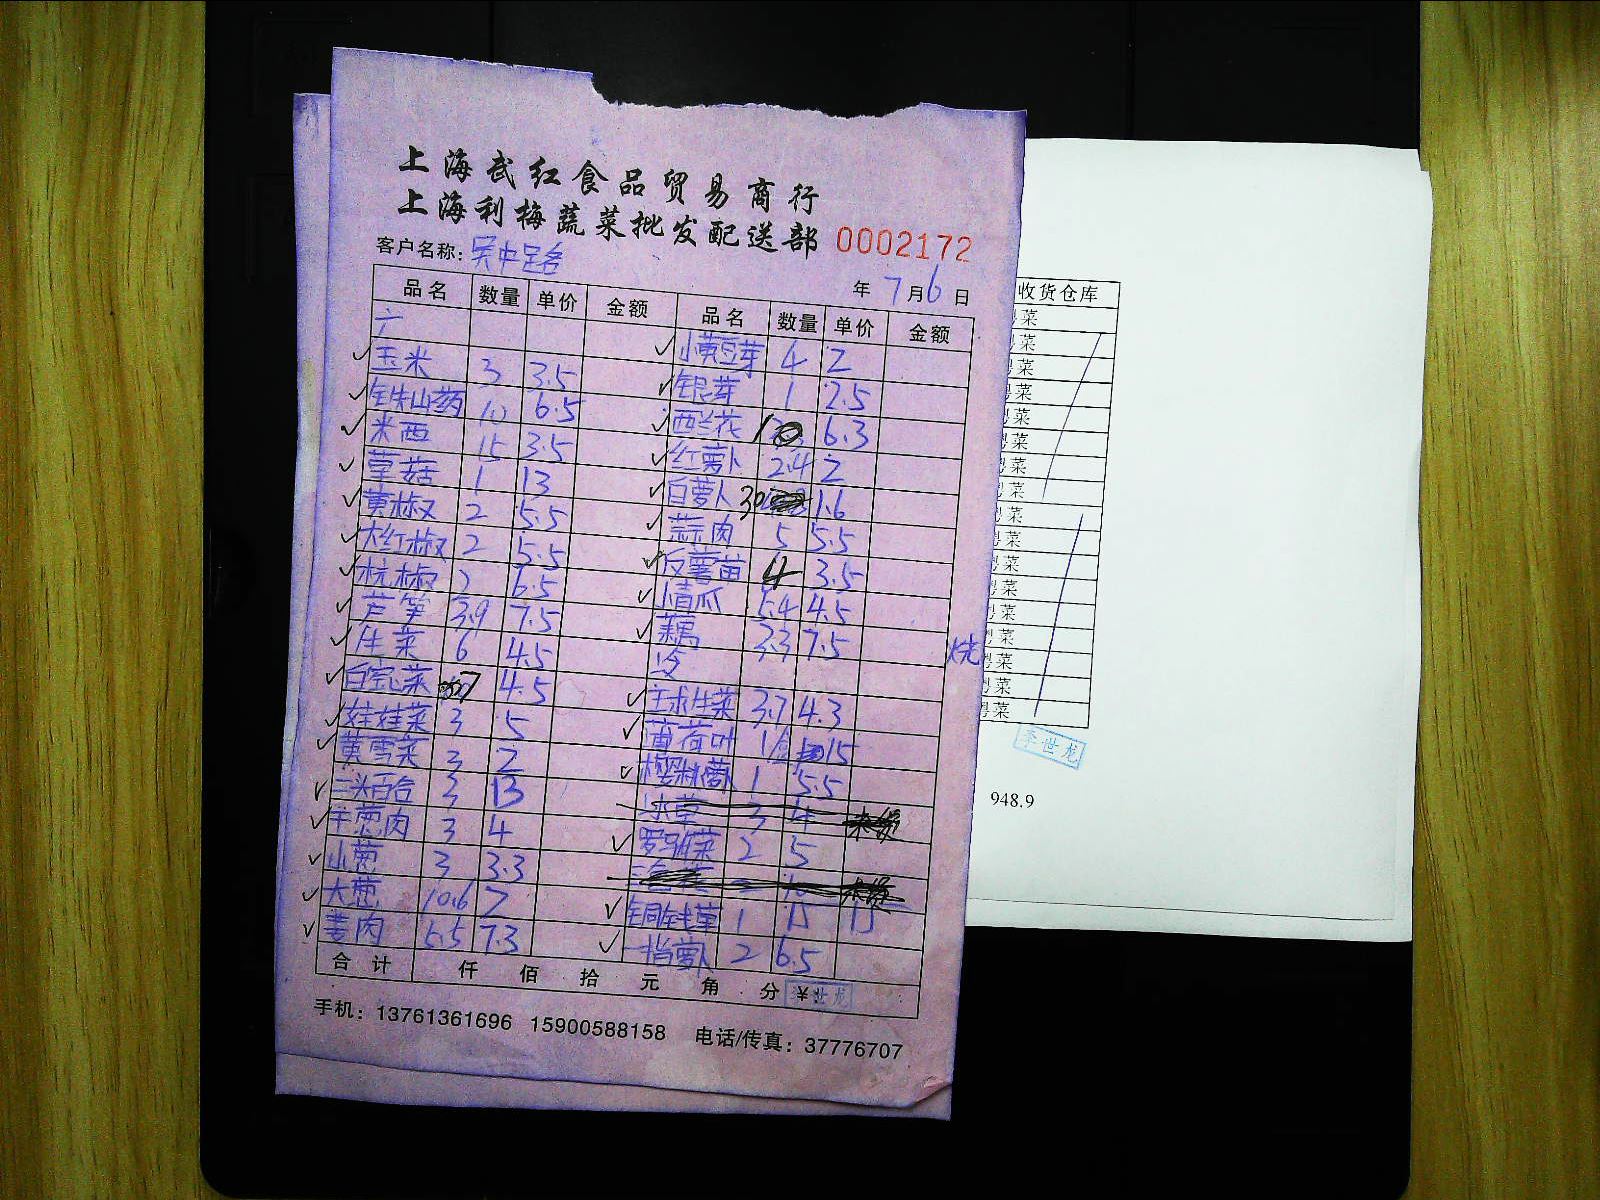 上海武红食品贸易商行
上海利梅蔬菜批发配送部 0002172
客户名称: 吴中路
年 7月6日
品名 数量 单价 金额 品名 数量 单价 金额
小黄豆芽 4 2
玉米 3 3.5 银芽 1 2.5
铁山药 10 6.5 西兰花 10 6.3
米西 15 3.5 红萝卜 2.4 2
草菇 1 13 白萝卜 30 1.6
黄椒 2 5.5 蒜肉 5 5.5
大红椒 2 5.5 反薯苗 4 3.5
杭椒 2 6.5 青瓜 5.4 4.5
芦笋 3.9 7.5 藕 3.3 7.5
生菜 6 4.5
白宝菜 7 4.5 球生菜 3.7 4.3
娃娃菜 3 5 薄荷叶 1/2 15
黄雪菜 3 2 樱桃萝卜 1 5.5
三头百合 3 13 冰草 3 4 未货
干葱肉 3 4 罗马生菜 2 5
小葱 3 3.3 未货
大葱 10.6 2 铜钱草 1 15 15
姜肉 5.5 7.3 指萝卜 2 6.5
合计 仟 佰 拾 元 角 分 ¥: 李世龙
手机: 13761361696 15900588158 电话/传真: 37776707
烧
收货仓库
粤菜
粤菜
粤菜
粤菜
粤菜
粤菜
粤菜
粤菜
粤菜
粤菜
粤菜
粤菜
粤菜
粤菜
粤菜
粤菜
粤菜
李世龙
948.9